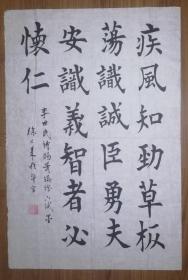 疾風知勁草板
蕩識誠臣勇夫
安識義智者必
懷仁
李世民詩賜蕭瑀